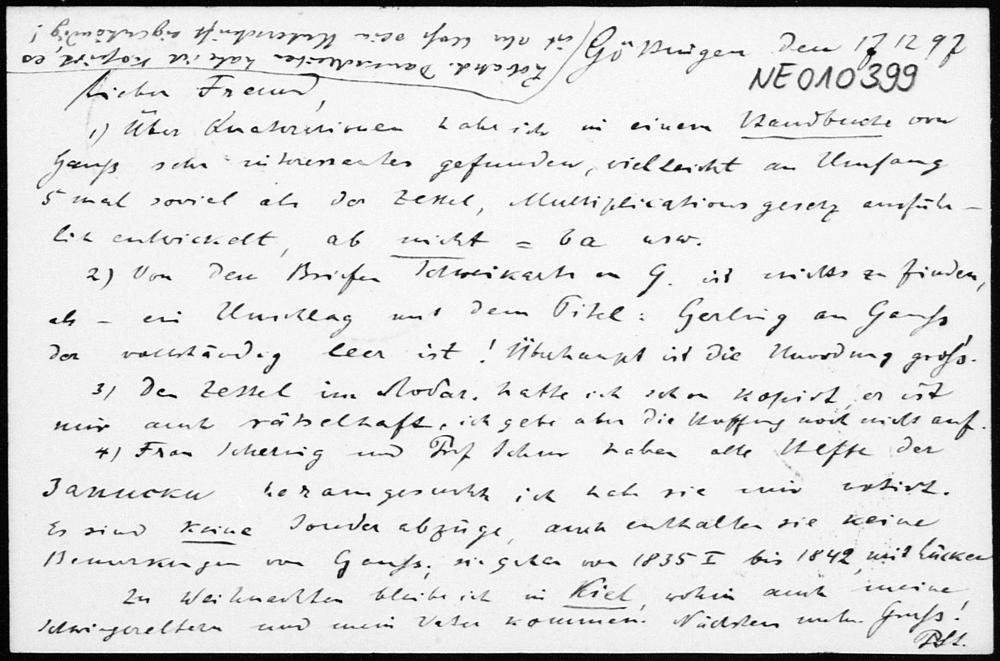 Göttingen den 17 12 97
NE010399
Lieber Freund,
1) Über Quaternionen habe ich in einem Handbuche von
Gauß sehr interessantes gefunden, vielleicht an Umfang
5 mal soviel als der Zettel, Multiplicationsgesetz ausführ-
lich entwickelt, ab nicht = ba usw.
2) Von den Briefen Schweikarts an G. ist nichts zu finden,
als - ein Umschlag mit dem Titel: Gerling an Gauß,
der vollständig leer ist! Überhaupt ist die Unordnung groß.
3) Den Zettel im hatte ich schon kopirt, er ist
mir auch rätselhaft, ich gebe aber die Hoffnung noch nicht auf.
4) Frau Schering und Prof Schur haben alle Hefte der
Записки herausgesucht, ich habe sie mir notirt.
Es sind keine Sonderabzüge, auch enthalten sie keine
Bemerkungen von Gauß; sie gehen von 1835 I bis 1842, mit Lücken
Zu Weihnachten bleibe ich in Kiel, wohin auch meine
Schwiegereltern und mein Vater kommen. Nächstens mehr. Gruß!
PSt.
Lobatsch. Darunter habe ich kopirt, es
ist aber bloß seine Unterschrift eigenhändig!